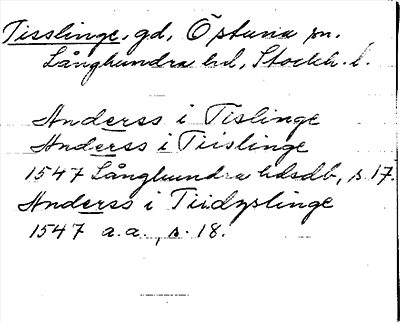 Tisslinge, gd, Östuna sn.
Långhundra hd, Stockh. l.
Anderss i Tislinge
Anderss i Tiislinge
1547 Långhundra hdsdb, s. 17.
Anderss i Tiidzslinge
1547 a.a., s. 18.